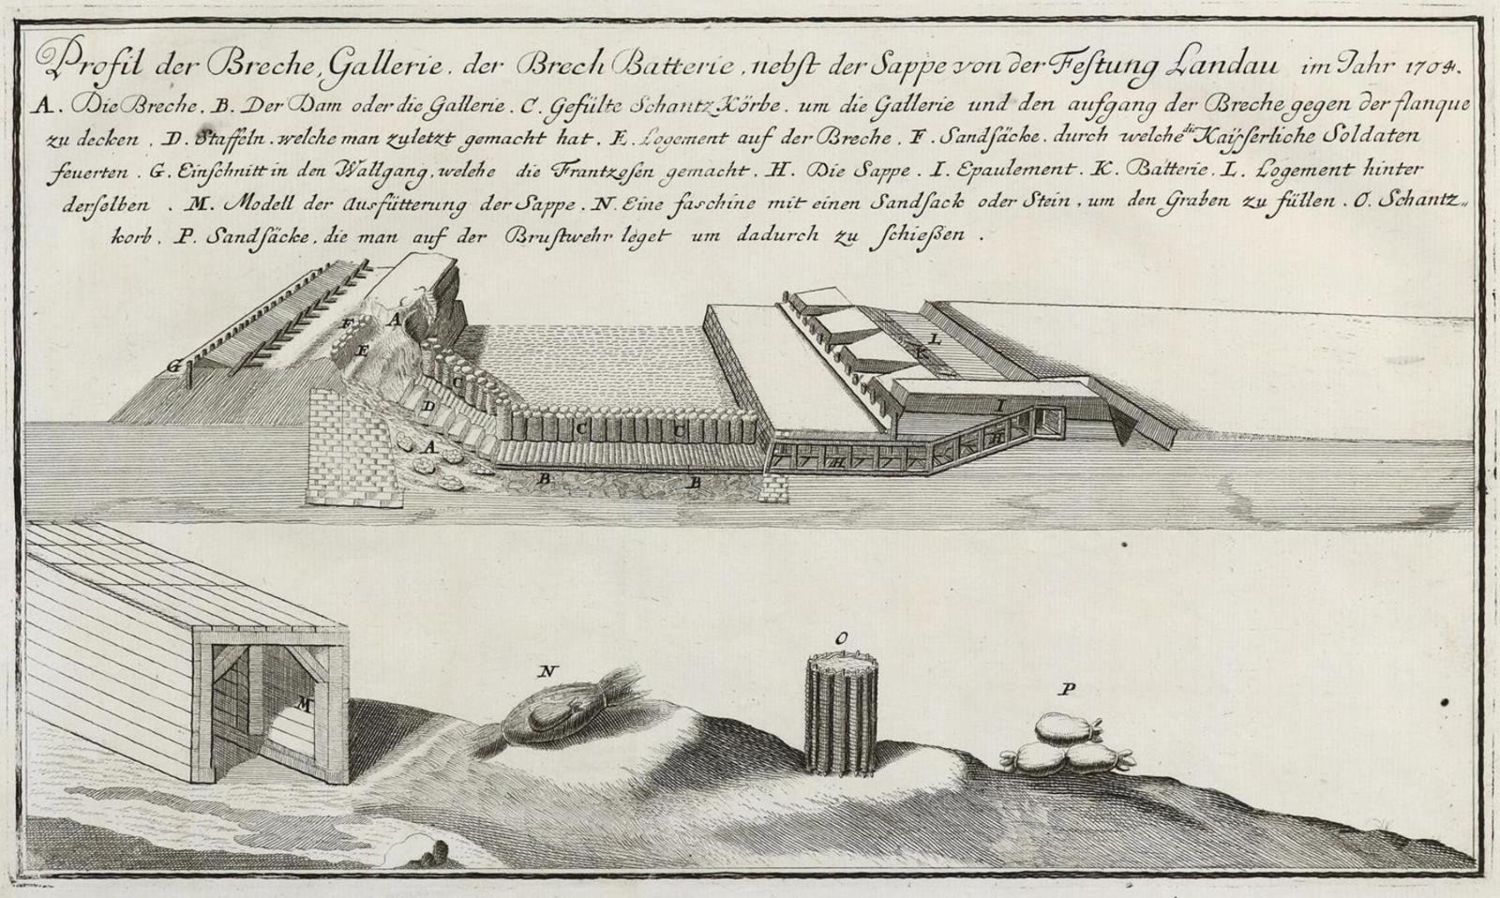 Profil der Breche, Gallerie, der Brech Batterie, nebst der Sappe von der Festung Landau im Jahr 1704.
A. Die Breche. B. Der Dam oder die Gallerie. C. Gefülte Schantz Körbe, um die Gallerie und den aufgang der Breche gegen der flanque
zu decken. D. Staffeln, welche man zuletzt gemacht hat. E. Logement auf der Breche. F. Sandsäcke, durch welche die Kaÿserliche Soldaten
feuerten. G. Einschnitt in den Wallgang, welche die Frantzosen gemacht. H. Die Sappe. I. Epaulement. K. Batterie. L. Logement hinter
derselben. M. Modell der Ausfütterung der Sappe. N. Eine faschine mit einen Sandsack oder Stein, um den Graben zu füllen. O. Schantz„
korb. P. Sandsäcke, die man auf der Brustwehr leget um dadurch zu schießen.
G
F
A
E
C
D
A
C
C
B
B
L
K
I
H
H
M
N
O
P